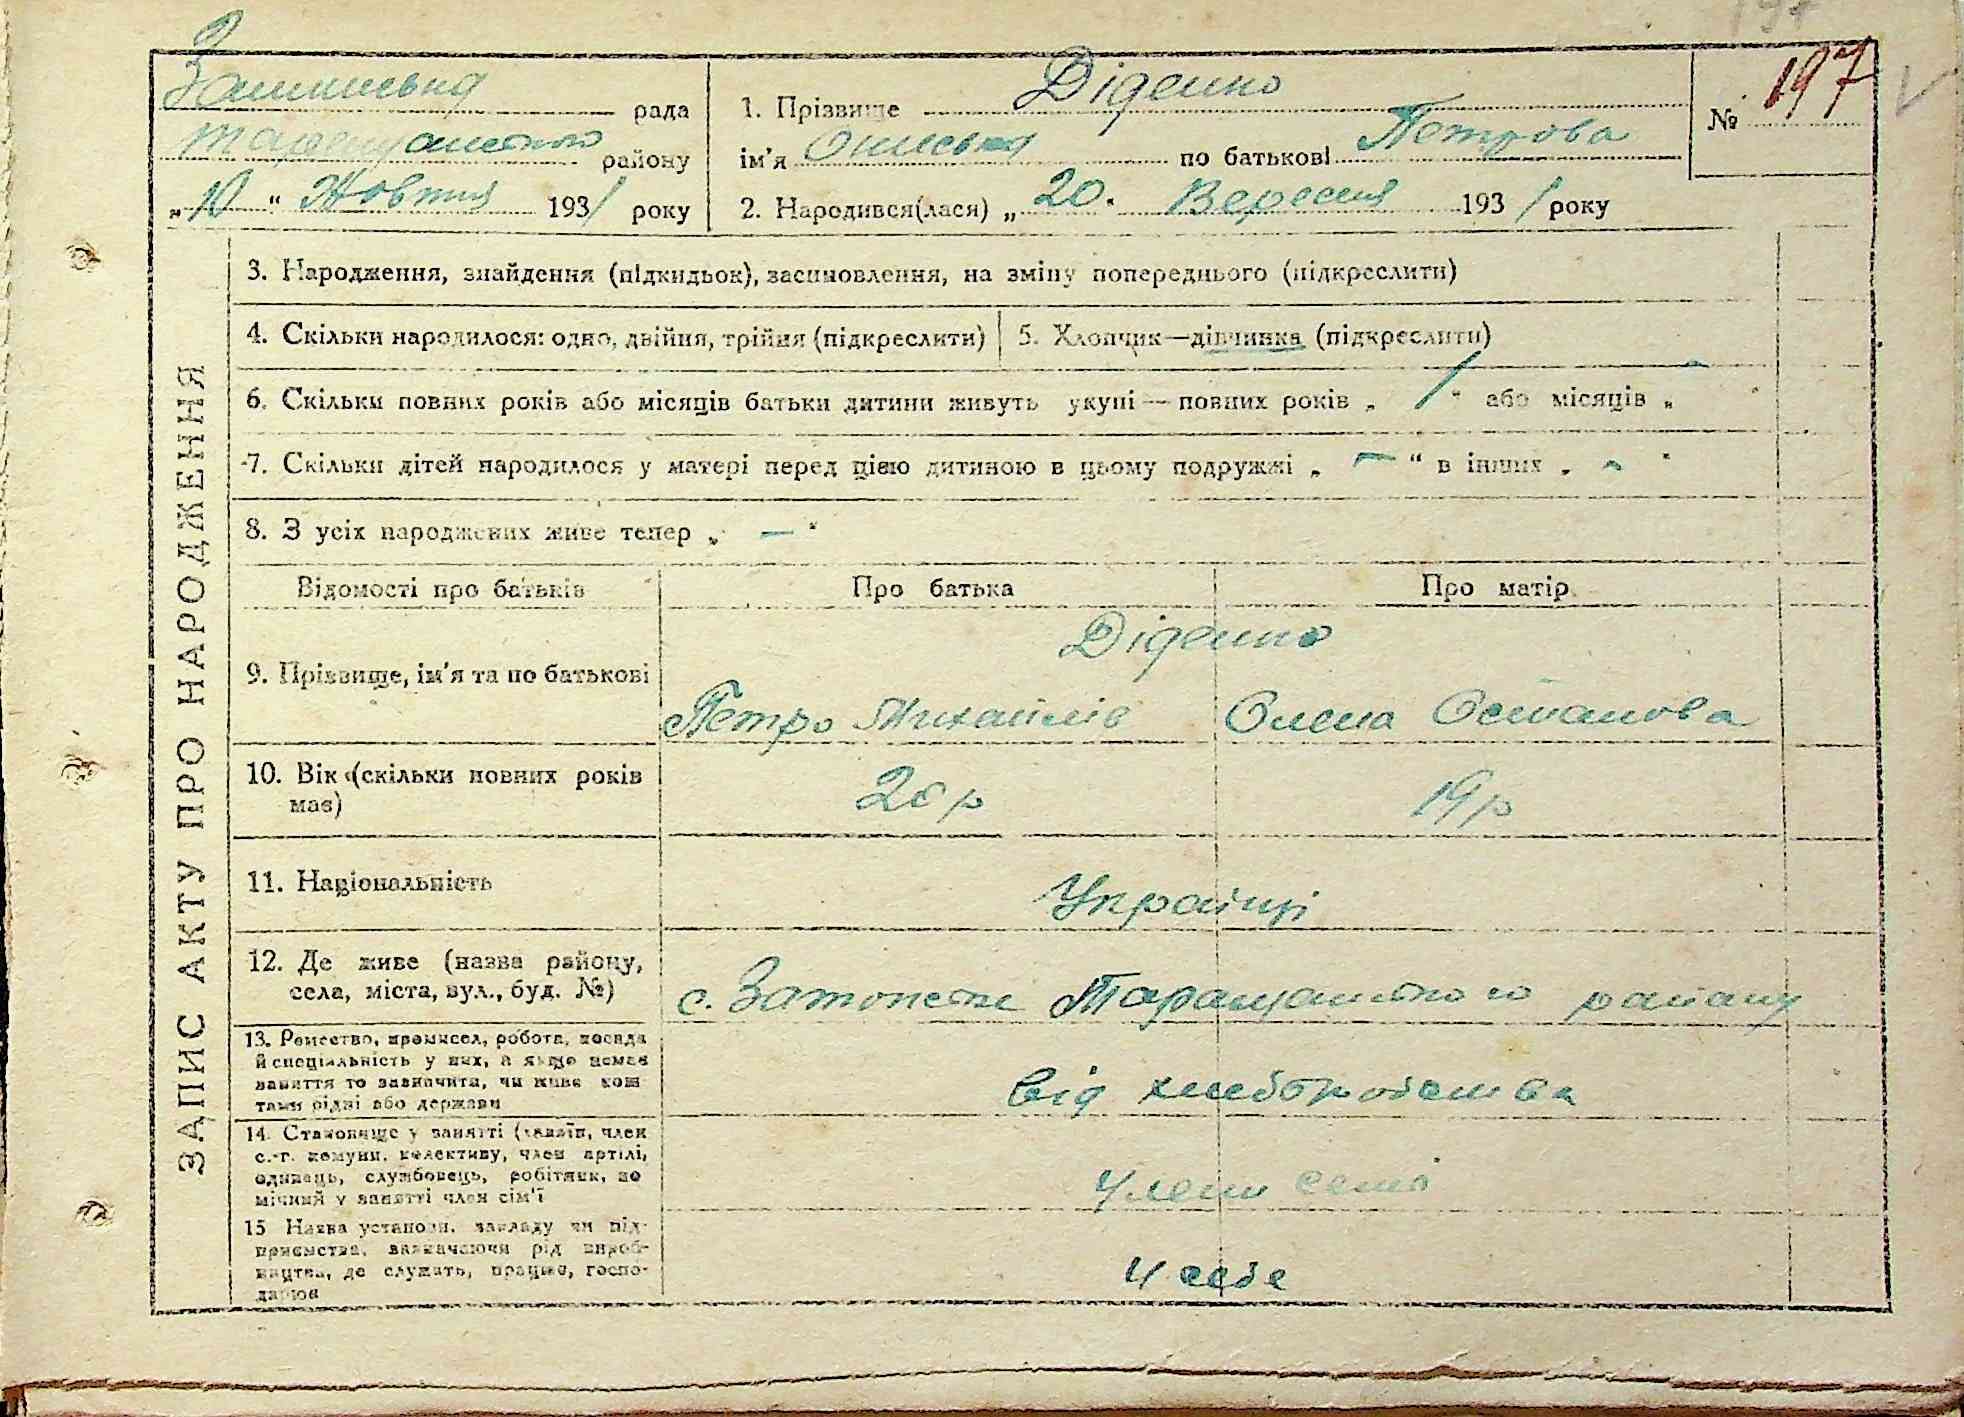 197
рада
району
„10“ Жовтня 1931 року
1. Прізвище Діденко
ім'я по батькові Петрова
2. Народився(лася) „20. Вересня 1931 року
№ 197
ЗАПИС АКТУ ПРО НАРОДЖЕННЯ
3. Народження, знайдення (підкидьок), засиновлення, на зміну попереднього (підкреслити)
4. Скільки народилося: одно, двійня, трійня (підкреслити)
5. Хлопчик—дівчинка (підкреслити)
6. Скільки повних років або місяців батьки дитини живуть укупі — повних років „ 1 “ або місяців „
7. Скільки дітей народилося у матері перед цією дитиною в цьому подружжі „ — “ в інших „ - “
8. З усіх народжених живе тепер „ — “
Відомості про батьків Про батька Про матір
Діденко
9. Прізвище, ім'я та по батькові Петро Михайлів Олена Остапова
10. Вік (скільки повних років
має) 19р
11. Національність Українці
12. Де живе (назва району,
села, міста, вул., буд. №) с. Таращанського району
13. Ремество, промисел, робота, посада
й спеціяльність у них, а якщо немає
заняття то зазначити, чи живе кош
тами рідні або держави
від хлеборобства
14. Становище у занятті (хазяїн, член
с.-г. комуни, колективу, член артілі,
одинець, службовець, робітник, по
мічний у занятті член сім'ї
члени семі
15 Назва установи, закладу чи під-
приємства, зазначаючи рід вироб-
ництва, де служить, працює, госпо-
дарює
У себе